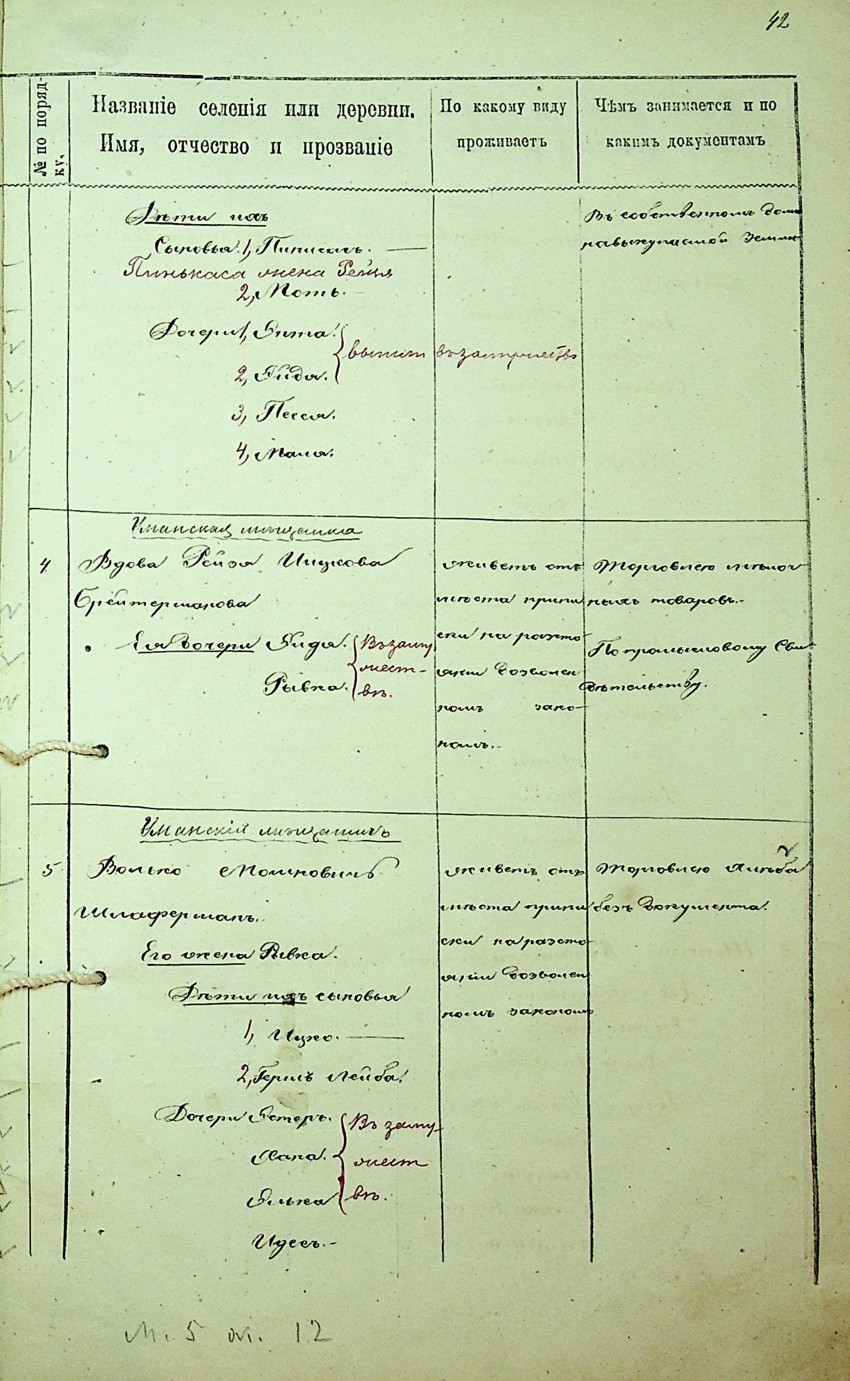 42
№ по поряд-
ку.
Названіе селенія или деревни.
Имя, отчество и прозваніе
По какому виду
проживаетъ
Чѣмъ занимается и по
какимъ документамъ
Дѣти ихъ
Сыновья: 1, Пинисахъ. —
Пинькаса жена Рейця
2, Мотъ.
Дочери 1, Энта.
въ замужествѣ
2, Гида.
3, Песся.
4, Маля.
Въ собственномъ домѣ
на выкупаемой землѣ
4
Уманская мѣщанка
Вдова Рейза Ицкова
Брейтерманова
Ея дочери Гида.
Рывка.
Въ заму
жест-
вѣ.
живетъ отъ
мѣста припи
ски на разсто
яніи дозволен
номъ зако-
номъ.-
Торговлею мѣлоч
ныхъ товаровъ.-
По промысловому Сви-
дѣтельству.
5
Уманскій мѣщанинъ
Волько Мошковичъ
Шлаферманъ.
Его жена Рывка.
Дѣти ихъ сыновья
1, Ицко. —
2, Гершъ Лейба.
Дочери Эстеръ.
Хана.
Элька
Въ заму-
жест
вѣ.
Идесъ.-
живетъ отъ
мѣста припи
ски на разсто
яніи дозволен
номъ закономъ
Торговлею хлѣба
безъ документа.
М. 5 ж. 12